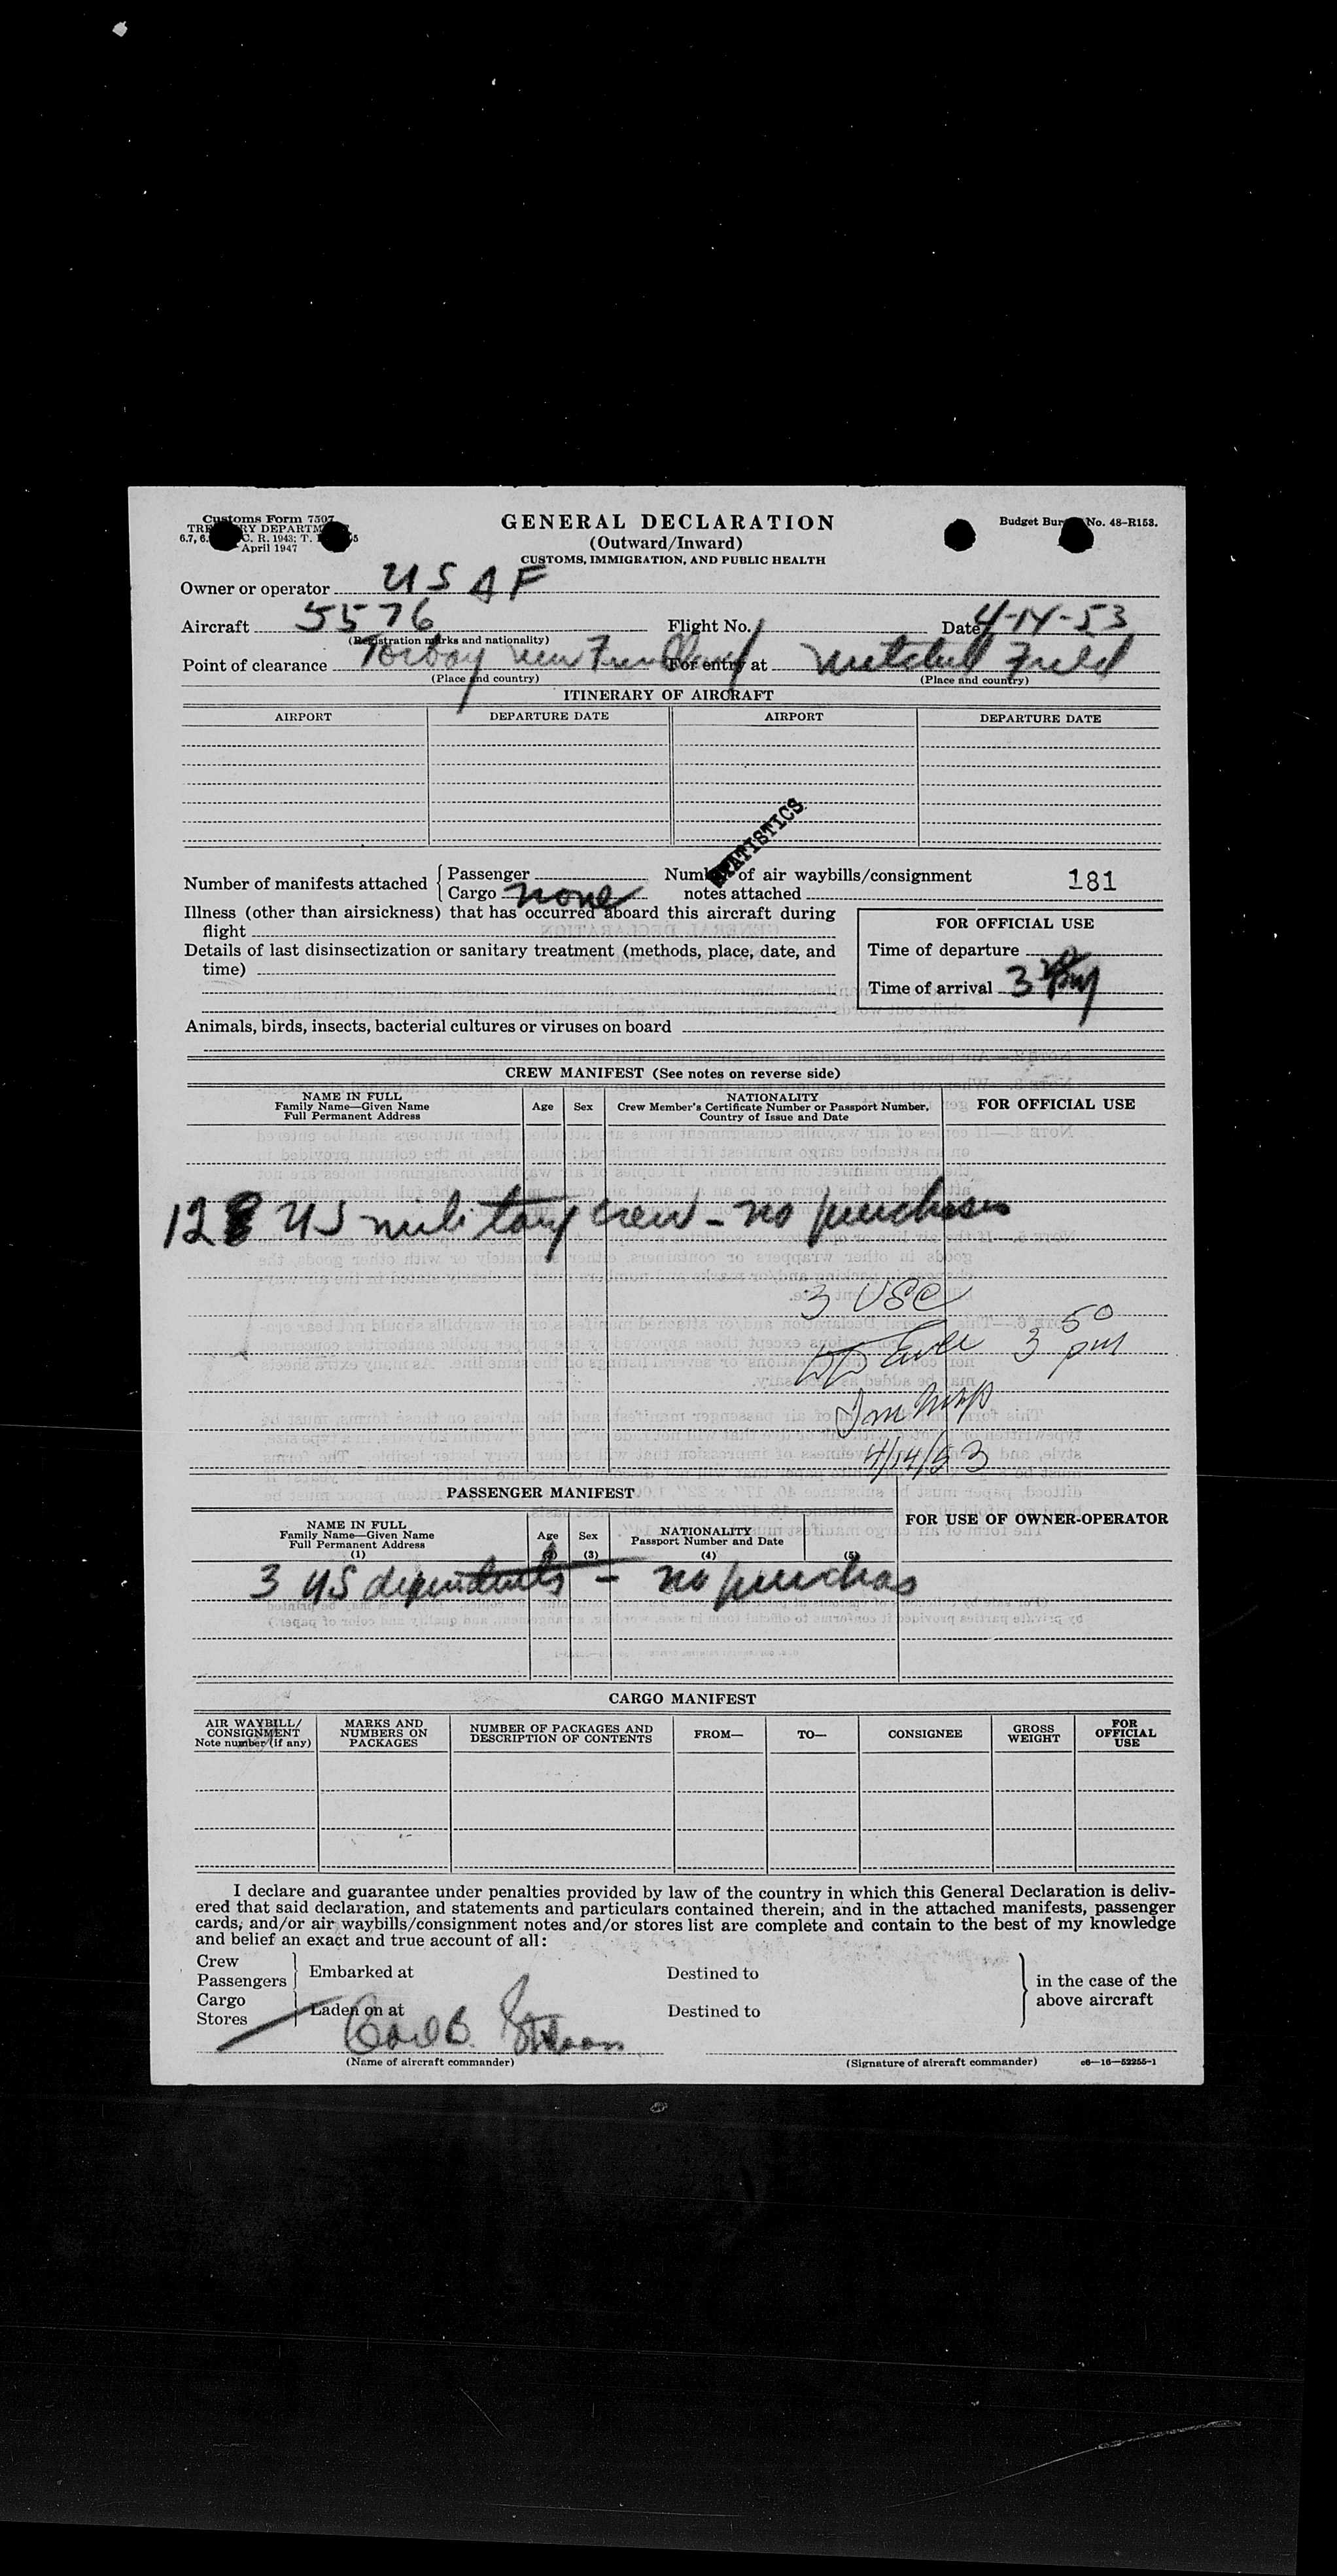 Customs Form 7507
TREASURY DEPARTMENT
C. R. 1943; T.
April 1947
GENERAL DECLARATION
(Outward/Inward)
CUSTOMS, IMMIGRATION, AND PUBLIC HEALTH
Budget Bur No. 48-R153.
Owner or operator USAF
Aircraft 5576 Flight No. Date 4-14-53
(Registration marks and nationality)
Point of clearance Torbay For entry at Mitchel Field
(Place and country) (Place and country)
ITINERARY OF AIRCRAFT
AIRPORT DEPARTURE DATE AIRPORT DEPARTURE DATE
STATISTICS
Number of manifests attached { Passenger
Cargo none
Number of air waybills/consignment
notes attached 181
Illness (other than airsickness) that has occurred aboard this aircraft during
flight
Details of last disinsectization or sanitary treatment (methods, place, date, and
time)
FOR OFFICIAL USE
Time of departure
Time of arrival 3
Animals, birds, insects, bacterial cultures or viruses on board
CREW MANIFEST (See notes on reverse side)
NAME IN FULL
Family Name—Given Name
Full Permanent Address
Age Sex
NATIONALITY
Crew Member's Certificate Number or Passport Number,
Country of Issue and Date
FOR OFFICIAL USE
12 US military crew - no purchases
3 USC
3 50 pm
4/14/53
PASSENGER MANIFEST
NAME IN FULL
Family Name—Given Name
Full Permanent Address
(1)
Age
Sex
(3)
NATIONALITY
Passport Number and Date
(4) (5)
FOR USE OF OWNER-OPERATOR
3 US dependents - no purchas
CARGO MANIFEST
AIR WAYBILL/
CONSIGNMENT
Note number (if any)
MARKS AND
NUMBERS ON
PACKAGES
NUMBER OF PACKAGES AND
DESCRIPTION OF CONTENTS
FROM— TO— CONSIGNEE
GROSS
WEIGHT
FOR
OFFICIAL
USE
I declare and guarantee under penalties provided by law of the country in which this General Declaration is deliv-
ered that said declaration, and statements and particulars contained therein, and in the attached manifests, passenger
cards, and/or air waybills/consignment notes and/or stores list are complete and contain to the best of my knowledge
and belief an exact and true account of all:
Crew
Passengers } Embarked at Destined to
Cargo
Stores } Laden on at Destined to
} in the case of the
above aircraft
(Name of aircraft commander) (Signature of aircraft commander) c6—16—52255-1